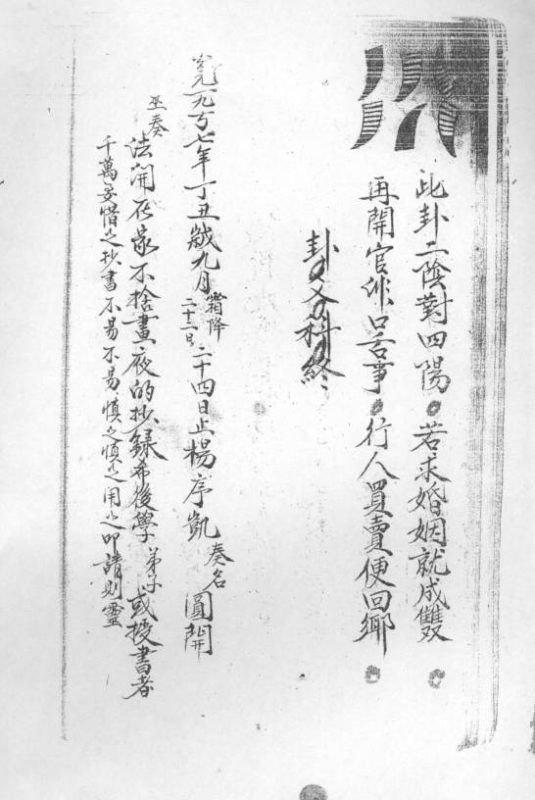 此卦二陰對四陽。若求婚姻就成雙。
再開官非口舌事。行人買賣便回鄉。
卦夕科終
一九九七年丁丑歲九月霜降二十二日二十四日止楊序凱奏名圓開
至奏法開在家不捨晝夜的抄錄希後學弟子或授書者
千萬妥惜之抄書不易不易慎之慎之用之叩請則靈